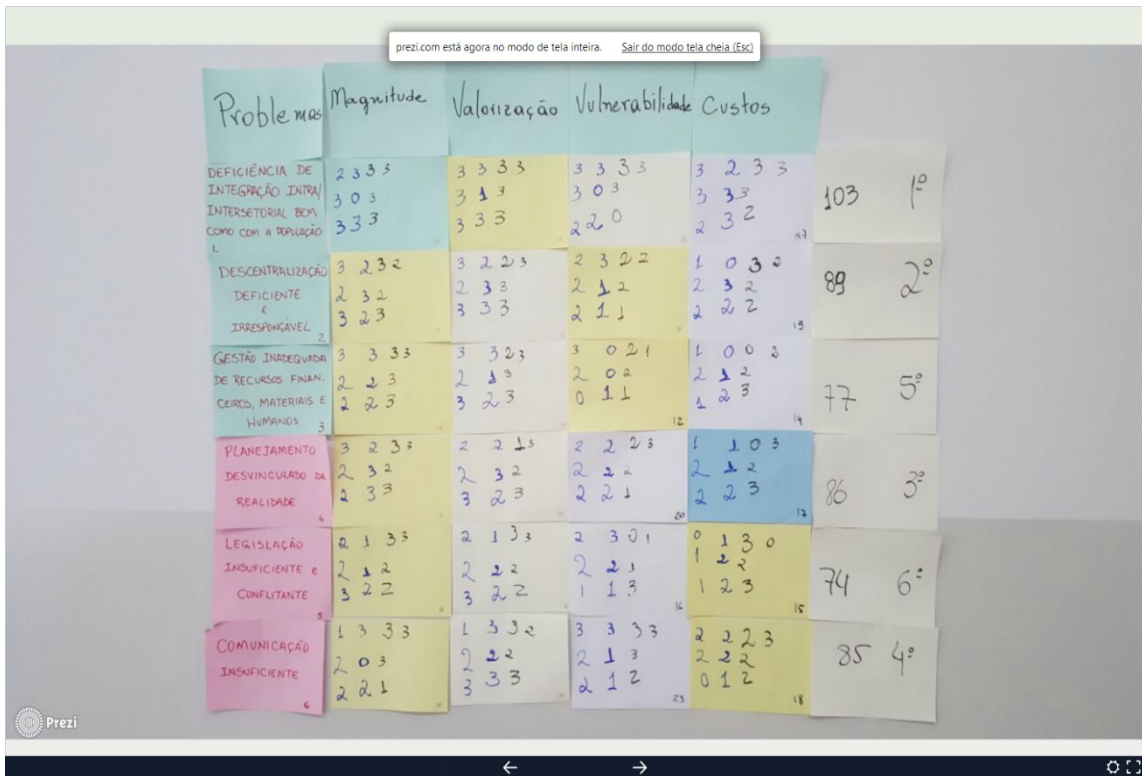 prezi.com está agora no modo de tela inteira. Sair do modo tela cheia (Esc)
Problemas Magnitude Valorização Vulnerabilidade Custos
DEFICIÊNCIA DE
INTEGRAÇÃO INTRA/
INTERSETORIAL BEM
COMO COM A POPULAÇÃO
1.
2 3 3 3
3 0 3
3 3 3
3 3 3 3
3 1 3
3 3 3
3 3 3 3
3 0 3
2 2 0
3 2 3 3
3 3 3
2 3 2
27
103 1º
DESCENTRALIZAÇÃO
DEFICIENTE
E
IRRESPONÇÁVEL
2
3 2 3 2
2 3 2
3 2 3
3 2 2 3
2 3 3
3 3 3
2 3 2 2
2 1 2
2 1 1
1 0 3 2
2 3 2
2 2 2
19
89 2º
GESTÃO INADEQUADA
DE RECURSOS FINAN.
CEIROS, MATERIAIS E
HUMANOS
3
3 3 3 3
2 2 3
2 2 3
3 3 2 3
2 1 3
3 2 3
3 0 2 1
2 0 2
0 1 1
12
1 0 0 2
2 1 2
1 2 3
14
77 5º
PLANEJAMENTO
DESVINCULADO DA
REALIDADE
4
3 2 3 3
2 3 2
2 3 3
2 2 1 3
2 3 2
3 2 3
2 2 2 3
2 2 2
2 2 1
20
1 1 0 3
2 1 2
2 2 3
17
86 3º
LEGISLAÇÃO
INSUFICIENTE E
CONFLITANTE
5
2 1 3 3
2 1 2
3 2 2
2 1 3 3
2 2 2
3 2 2
2 3 0 1
2 2 1
1 1 3
16
0 1 3 0
1 2 2
1 2 3
15
74 6º
COMUNICAÇÃO
INSUFICIENTE
6
1 3 3 3
2 0 3
2 2 1
1 3 3 2
2 2 2
3 3 3
3 3 3 3
2 1 3
2 1 2
23
2 2 2 3
2 2 2
0 1 2
18
85 4º
Prezi